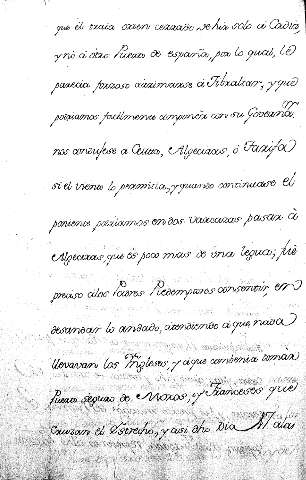 que él traia orden cerrado de hir solo á Cadiz,
y nó á otro Puerto de españa, por lo qual, le
parecia forzoso arrimarse á Jibraltar, y que
podiamos facilmente componer con su Governador
nos condujese a Ceuta, Algeciras, ó Tarifa
si el viento lo permitia, y quando continuase el
poniente podriamos en dos barcazas pasar á
Algeciras que es poco mas de una legua; fué
preciso a los Padres Redemptores consentir en
desandar lo andado, atendiendo á que nada
llevavan los Ingleses, y á que combenia tomar
Puerto seguro de Moros, y Franceses que
cruzan el Estrecho, y asi dho Dia 17 a las